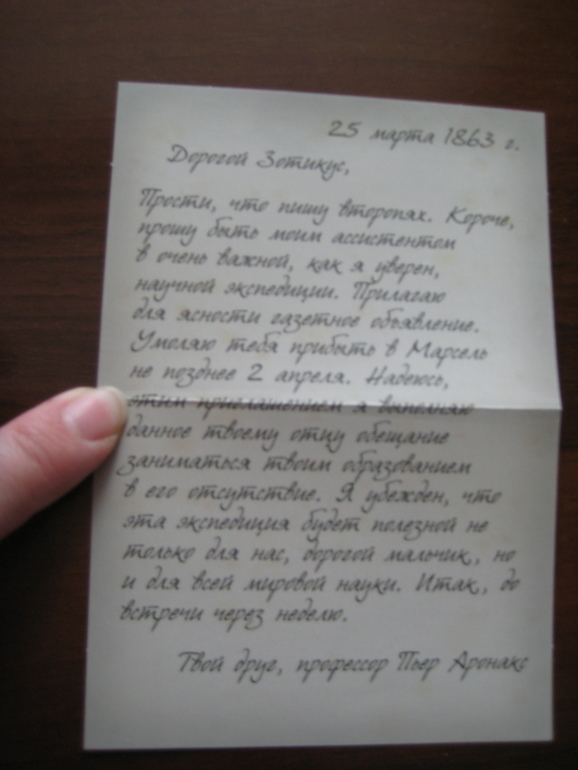 25 марта 1863 г.
Дорогой Зотикус,
Прости, что пишу второпях. Короче,
прошу быть моим ассистентом
в очень важной, как я уверен,
научной экспедиции. Прилагаю
для ясности газетное объявление.
Умоляю тебя прибыть в Марсель
не позднее 2 апреля. Надеюсь,
этим приглашением я выполняю
данное твоему отцу обещание
заниматься твоим образованием
в его отсутствие. Я убежден, что
эта экспедиция будет полезной не
только для нас, дорогой мальчик, но
и для всей мировой науки. Итак, до
встречи через неделю.
Твой друг, профессор Пьер Аронакс